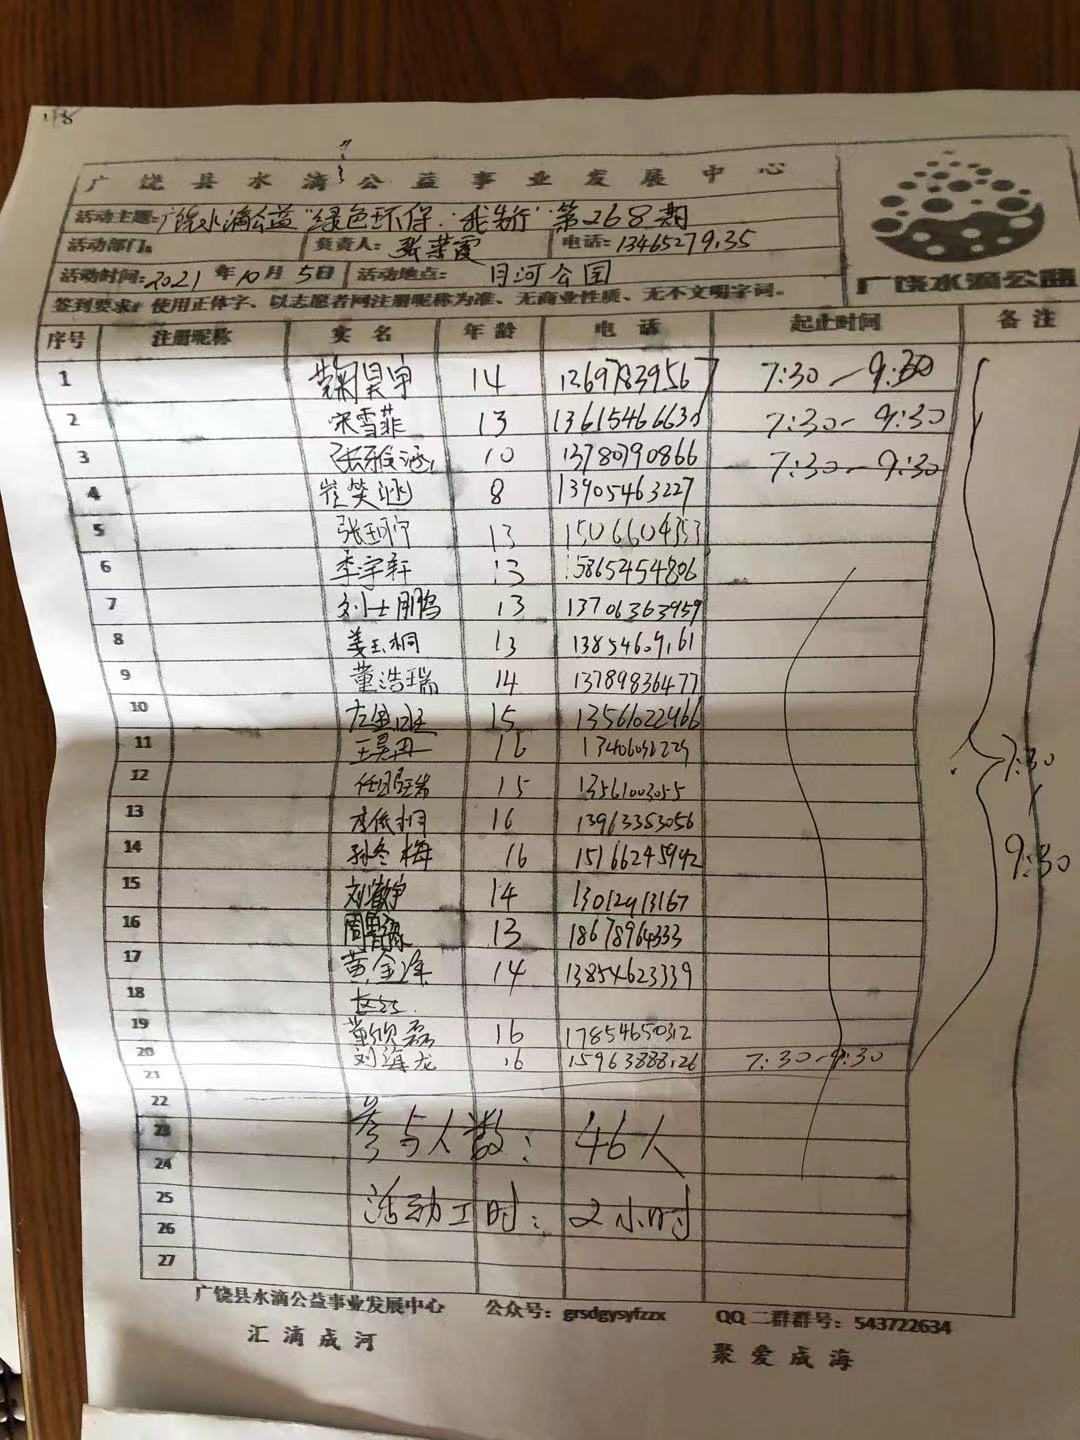 广饶县水滴公益事业发展中心
活动主题：广饶水滴公益"绿色环保，我先行"第268期
活动部门： 负责人： 张荣霞 电话：13465279135
活动时间：2021年10月5日 活动地点： 月河公园
签到要求：使用正体字、以志愿者网注册昵称为准、无商业性质、无不文明字词。
广饶水滴公益
序号 注册昵称 实名 年龄 电话 起止时间 备注
1 14 12697839567 7:30-9:30
2 宋雪菲 13 13615466630 7:30-9:30
3 张雅涵 10 13780790866 7:30-9:30
4 崔笑涵 8 13905463227
5 张玥宁 13 15066604333
6 李宇轩 13 15865454806
7 刘士鹏 13 13706363959
8 姜玉桐 13 13854609161
9 董浩瑞 14 13789836477
10 15 13561022966
11 王昊冉 16
12 15 13561003055
13 16 13963353056
14 孙冬梅 16 15166245942
15 14 13012913167
16 13 18678964333
17 黄金泽 14 13854623339
18
19 董欣磊 16 17854650312
20 刘海龙 16 15963888126 7:30-9:30
21
22
23 参与人数： 46人
24
25 活动工时： 2小时
26
27
7:30
9:30
广饶县水滴公益事业发展中心 公众号：grsdgysyfzzx QQ二群群号：543722634
汇滴成河 聚爱成海